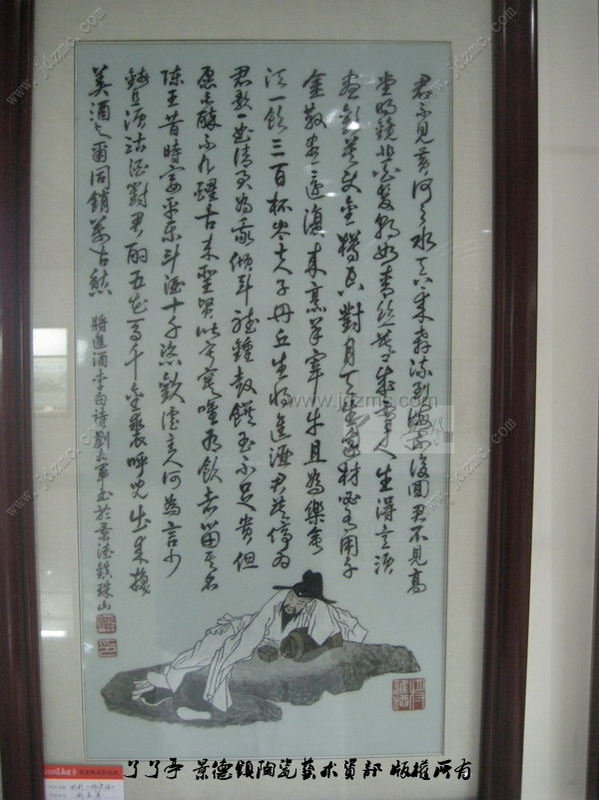 君不見黃河之水天上來奔流到海不復回君不見高
堂明鏡悲白髮朝如青絲暮成雪人生得意須
盡歡莫使金樽空對月天生我材必有用千
金散盡還復來烹羊宰牛且為樂會
須一飲三百杯岑夫子丹丘生將進酒君莫停為
君歌一曲請君為我傾耳聽鐘鼓饌玉不足貴但
愿長醉不用醒古來聖賢皆寂寞唯有飲者留其名
陳王昔時宴平樂斗酒十千恣歡謔主人何為言少
錢徑須沽酒對君酌五花馬千金裘呼兒出來換
美酒与爾同銷萬古愁
將進酒李白詩劉志軍書於景德鎮珠山
www.jdzmc.com
了了亭 景德镇陶瓷藝术资訊 版權所有